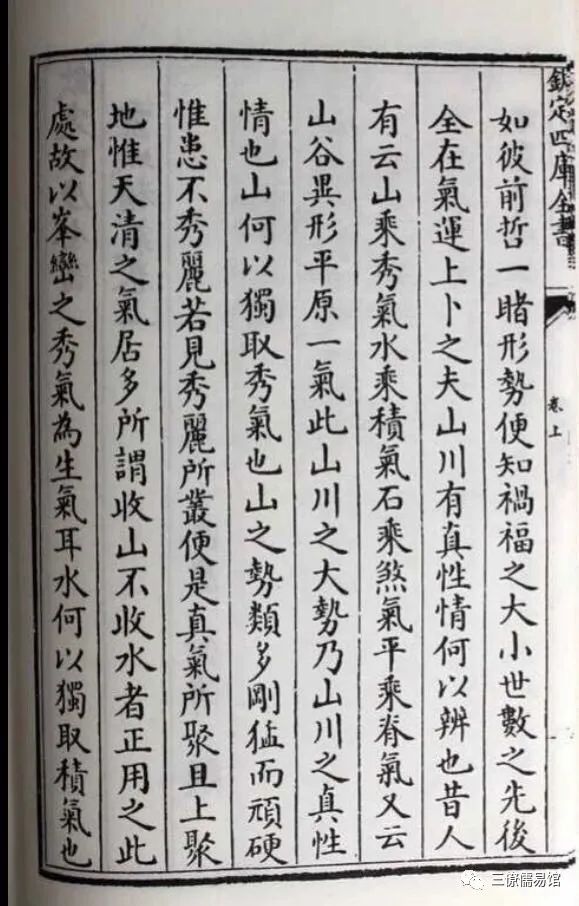 欽定四庫全書
卷上
如彼前哲一睹形勢便知禍福之大小世數之先後
全在氣運上卜之夫山川有真性情何以辨也昔人
有云山乘秀氣水乘積氣石乘煞氣平乘脊氣又云
山谷異形平原一氣此山川之大勢乃山川之真性
情也山何以獨取秀氣也山之勢類多剛猛而頑硬
惟患不秀麗若見秀麗所叢便是真氣所聚且上聚
地惟天清之氣居多所謂收山不收水者正用之此
處故以峯巒之秀氣為生氣耳水何以獨取積氣也
三僚儒易馆